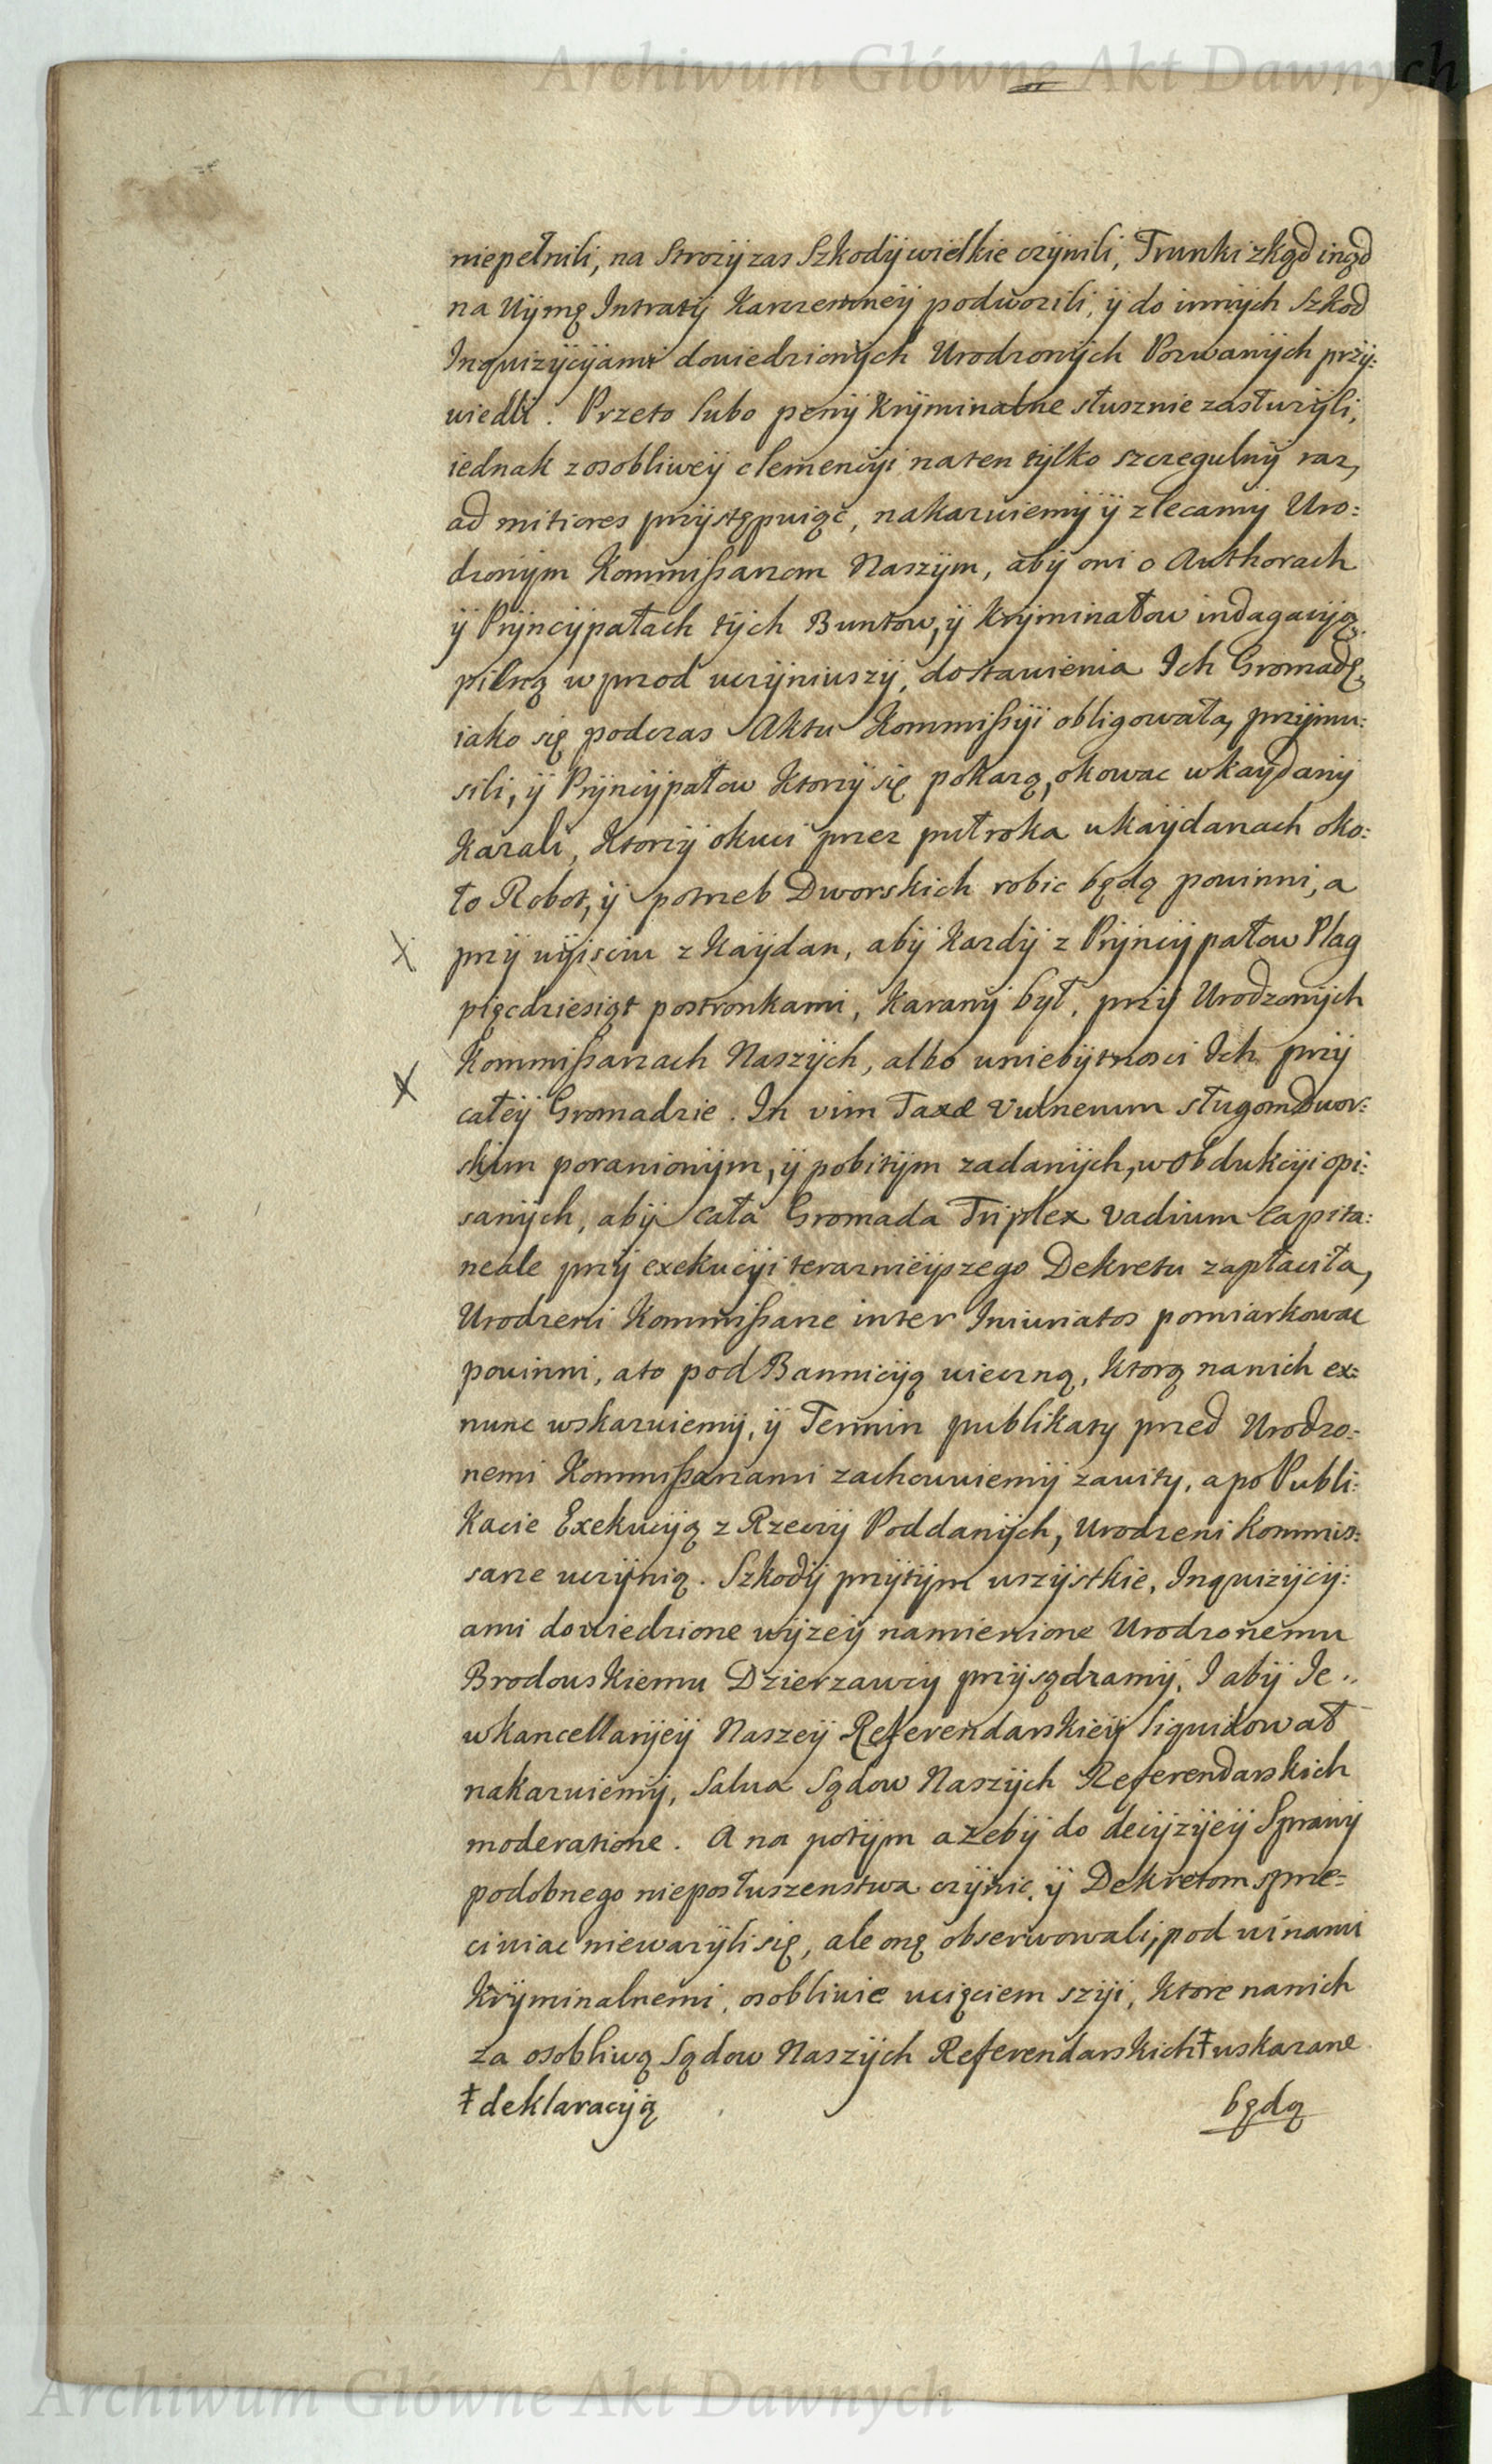 Archiwum Główne Akt Dawnych
niepełnili, na Strozÿ zas Szkodÿ wielkie czÿnili, Trunki zkąd inąd
na Uÿmę Intratÿ Karczemneÿ podwozili, ÿ do innÿch Szkod
Inquizÿcÿami dowiedzionÿch Urodzonÿch Pozwanÿch przÿ:
wiedli. Przeto lubo penÿ Krÿminalne słusznie zasłuzÿli,
iednak z osobliweÿ clemencÿi na ten tÿlko szczegulnÿ raz,
ad mitiores przÿstępuiąc, nakazuiemÿ ÿ zlecamÿ Uro:
dzonÿm Kommissarzom Naszÿm, abÿ oni o Authorach
ÿ Prÿncÿpałach tÿch Buntow, ÿ Krÿminałow indagacÿą
pilną wprzod uczÿniwszÿ, dostawienia Ich Gromadę,
iako się podczas Aktu Kommissÿi obligowała, przÿmu:
sili, ÿ Prÿncÿpałow Ktorzÿ się pokazą, okowac w kaÿdanÿ
Kazali, Ktorzÿ okuci przez puł roka w kaÿdanach oko:
ło Robot, ÿ potrzeb Dworskich robic będą powinni, a
przÿ wÿisciu z Kaÿdan, abÿ Kazdÿ z Prÿncÿpałow Plag
pięcdziesiąt postronkami, Karanÿ był, przÿ Urodzonÿch
Kommissarzach Naszÿch, albo w niebÿtnosci Ich przÿ
całeÿ Gromadzie. In vim Taxæ Vulnerum sługom Dwor:
skim poranionÿm, ÿ pobitÿm zadanÿch, w obdukcÿi opi:
sanÿch, abÿ cała Gromada Triplex Vadium Capita:
neale przÿ exekucÿi terazniéÿszego Dekretu zapłaciła,
Urodzeni Kommissarze inter Iniuriatos pomiarkowac
powinni, a to pod Bannicÿą wieczną, Ktorą na nich ex:
nunc wskazuiemÿ, ÿ Termin publikaty przed Urodzo:
nemi Kommissarzami zachowuiemÿ zawity, a po Publi:
Kacie Exekucÿą z Rzeczÿ Poddanÿch, Urodzeni Kommis:
sarze uczÿnią. Szkodÿ przÿtÿm wszÿstkie, Inquizÿcÿ:
ami dowiedzione wÿzeÿ namienione Urodzonemu
Brodowskiemu Dzierzawcÿ przÿsądzamÿ, I abÿ Ie
w kancellarÿeÿ Naszeÿ Referendarskieÿ liquidował
nakazuiemÿ, Salva Sądow Naszÿch Referendarskich
moderatione. A na potÿm azebÿ do decÿzÿeÿ Sprawÿ
podobnego nieposłuszenstwa czÿnic, ÿ Dekretom sprze-
ciwiac niewazÿli się, ale onę obserwowali, pod winami
Krÿminalnemi, osobliwie ucięciem szÿi, Ktore na nich
za osobliwą Sądow Naszÿch Referendarskich ‡ wskazane
‡ deklaracÿą
będą
Archiwum Główne Akt Dawnych